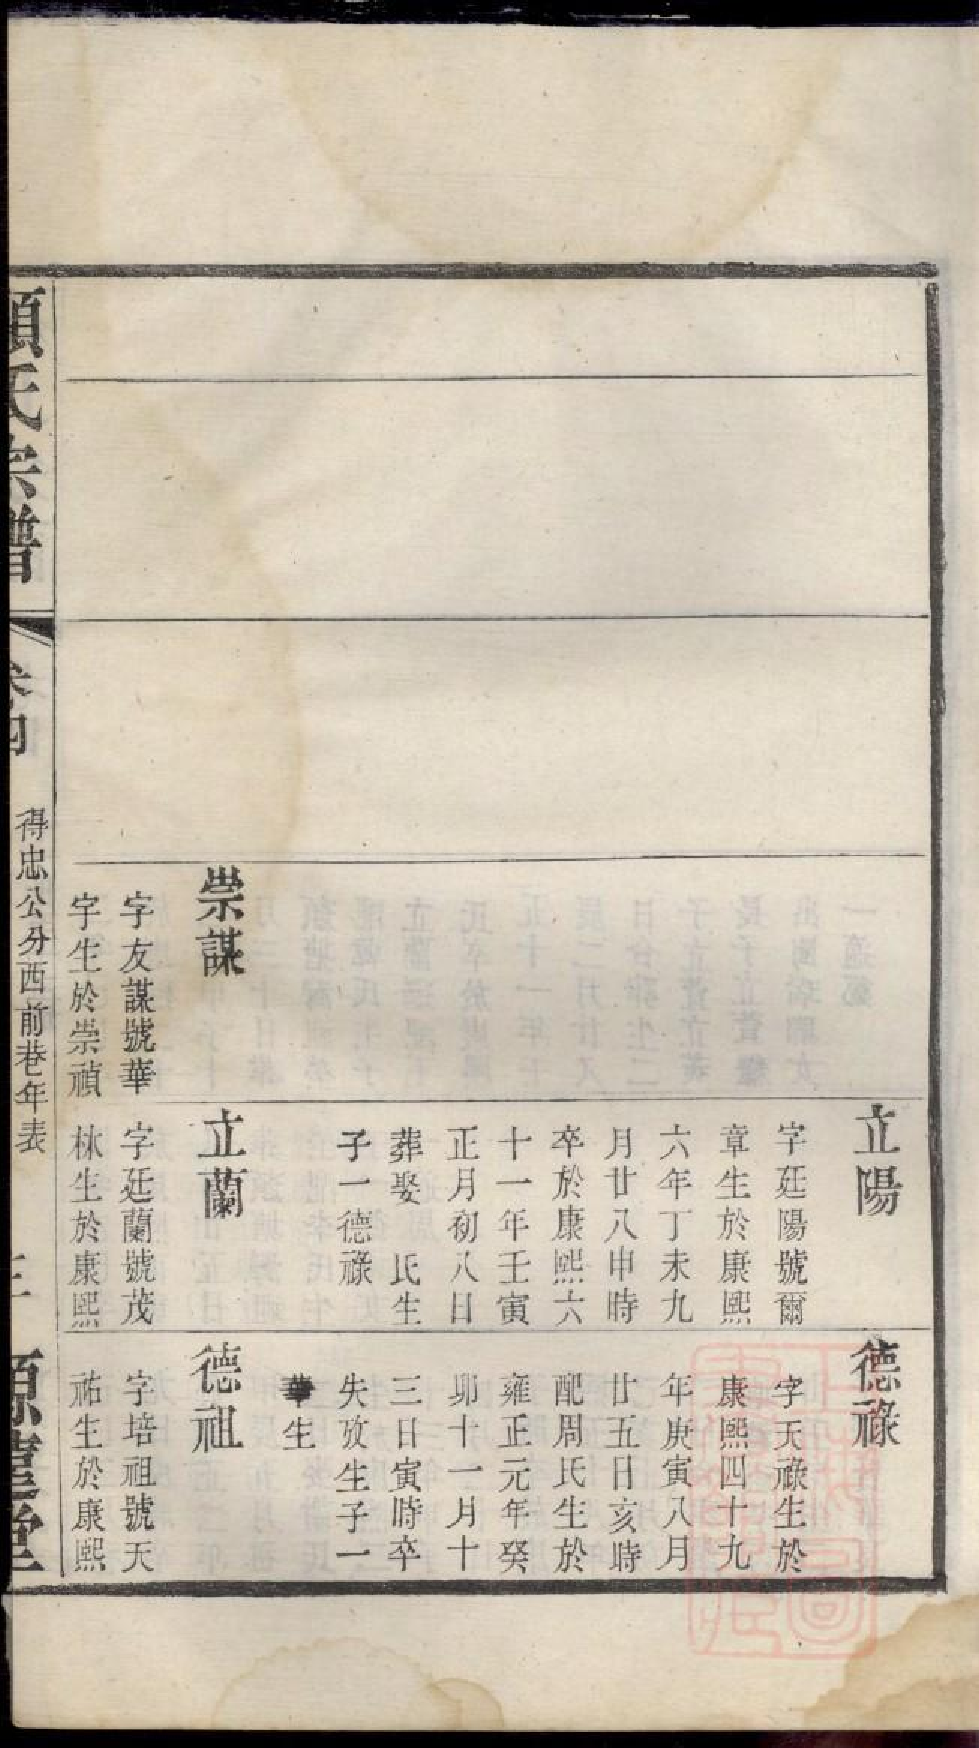 崇謀
字友謀號華
字生於崇禎
立陽
字廷陽號爾
章生於康熙
六年丁未九
月廿八申時
卒於康熙六
十一年壬寅
正月初八日
葬娶　氏生
子一德祿
立蘭
字廷蘭號茂
林生於康熙
德祿
字天祿生於
康熙四十九
年庚寅八月
廿五日亥時
配周氏生於
雍正元年癸
卯十一月十
三日寅時卒
失攷生子一
華生
德祖
字培祖號天
祐生於康熙
項氏宗譜
卷四
得忠公分西前巷年表